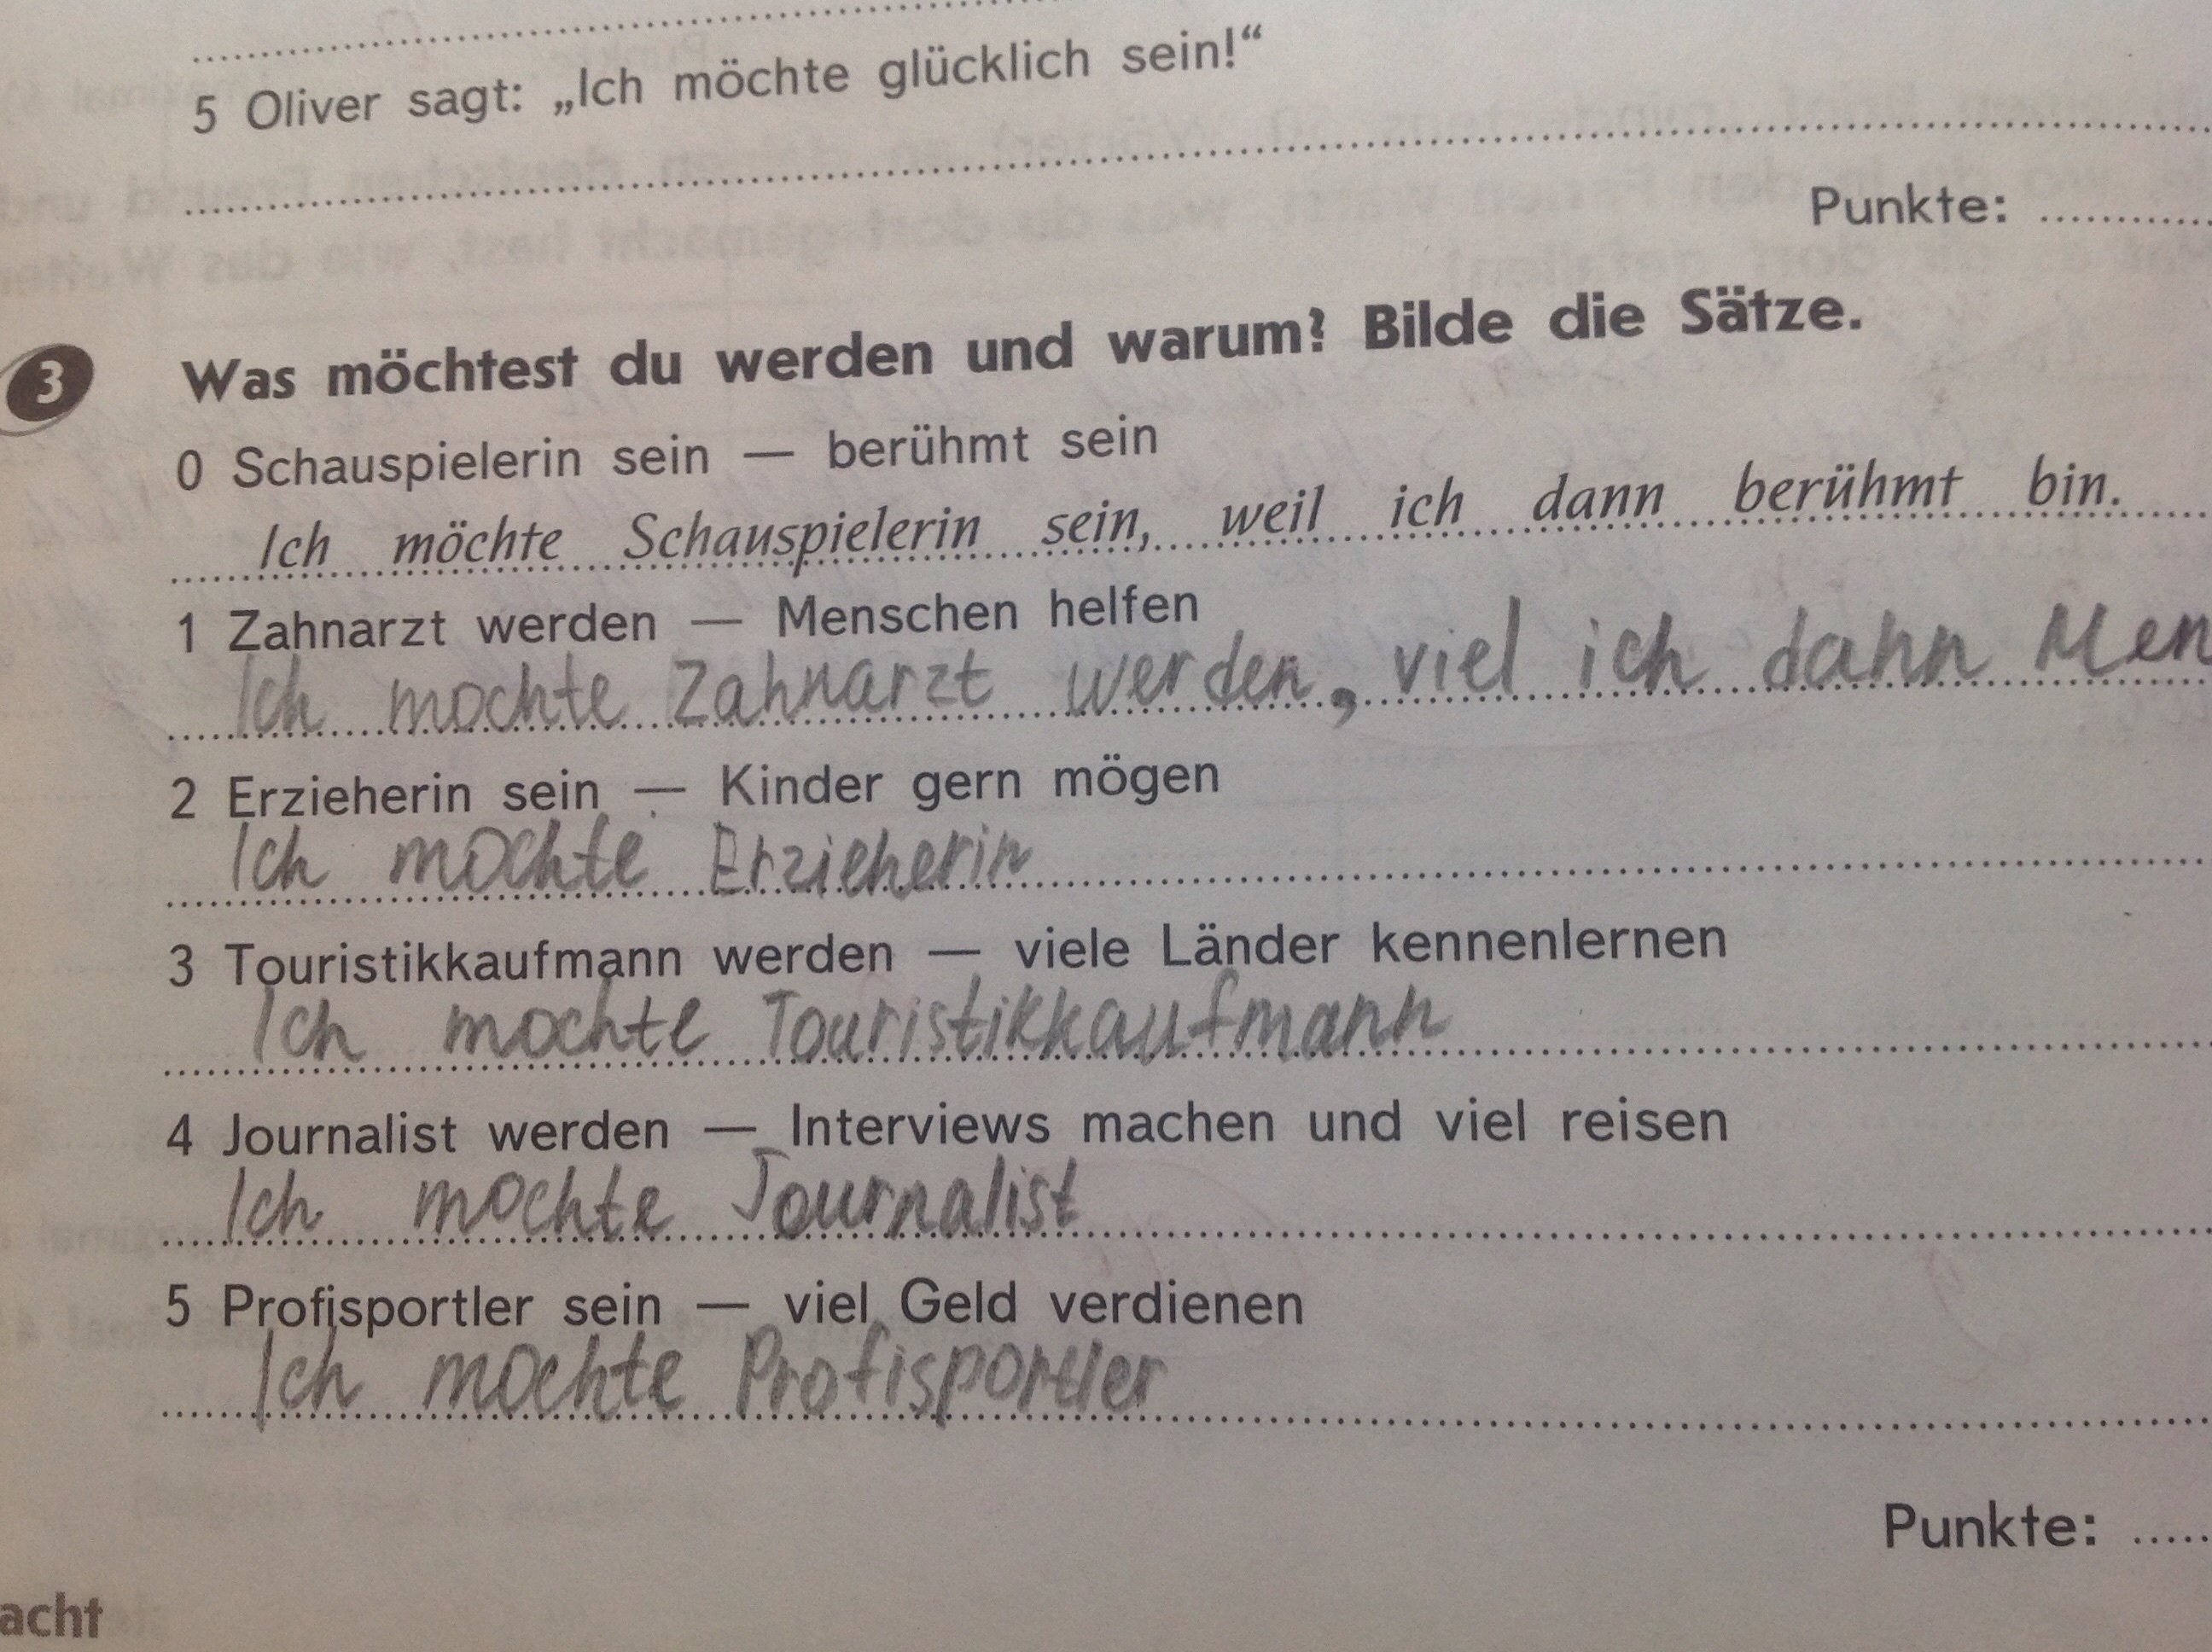 5 Oliver sagt: „Ich möchte glücklich sein!“
Punkte:
3 Was möchtest du werden und warum? Bilde die Sätze.
0 Schauspielerin sein — berühmt sein
Ich möchte Schauspielerin sein, weil ich dann berühmt bin.
1 Zahnarzt werden — Menschen helfen
Ich mochte Zahnarzt werden, viel ich dann Men
2 Erzieherin sein — Kinder gern mögen
Ich mochte Erzieherin
3 Touristikkaufmann werden — viele Länder kennenlernen
Ich mochte Touristikkaufmann
4 Journalist werden — Interviews machen und viel reisen
Ich mochte Journalist
5 Profisportler sein — viel Geld verdienen
Ich mochte Profisportler
Punkte:
acht